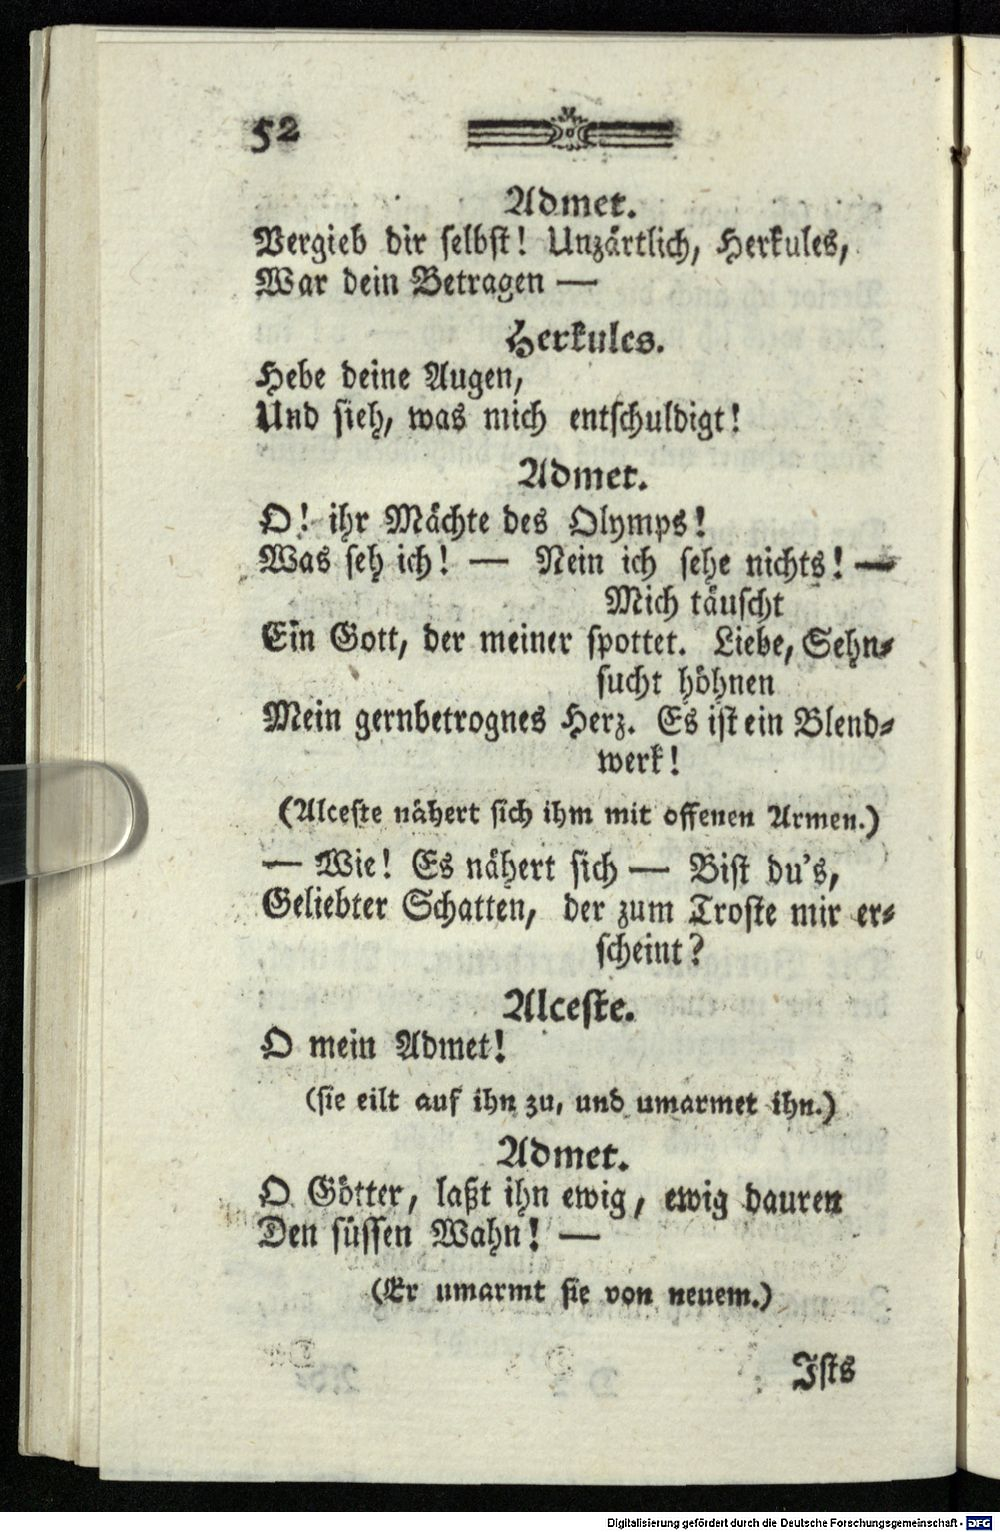 52
Admet.
Vergieb dir selbst! Unzärtlich, Herkules,
War dein Betragen —
Herkules.
Hebe deine Augen,
Und sieh, was mich entschuldigt!
Admet.
O! ihr Mächte des Olymps!
Was seh ich! — Nein ich sehe nichts! —
Mich täuscht
Ein Gott, der meiner spottet. Liebe, Sehn-
sucht höhnen
Mein gernbetrognes Herz. Es ist ein Blend-
werk!
(Alceste nähert sich ihm mit offenen Armen.)
— Wie! Es nähert sich — Bist du's,
Geliebter Schatten, der zum Troste mir er-
scheint?
Alceste.
O mein Admet!
(sie eilt auf ihn zu, und umarmet ihn.)
Admet.
O Götter, laßt ihn ewig, ewig dauren
Den süssen Wahn! —
(Er umarmt sie von neuem.)
Ists
Digitalisierung gefördert durch die Deutsche Forschungsgemeinschaft - DFG